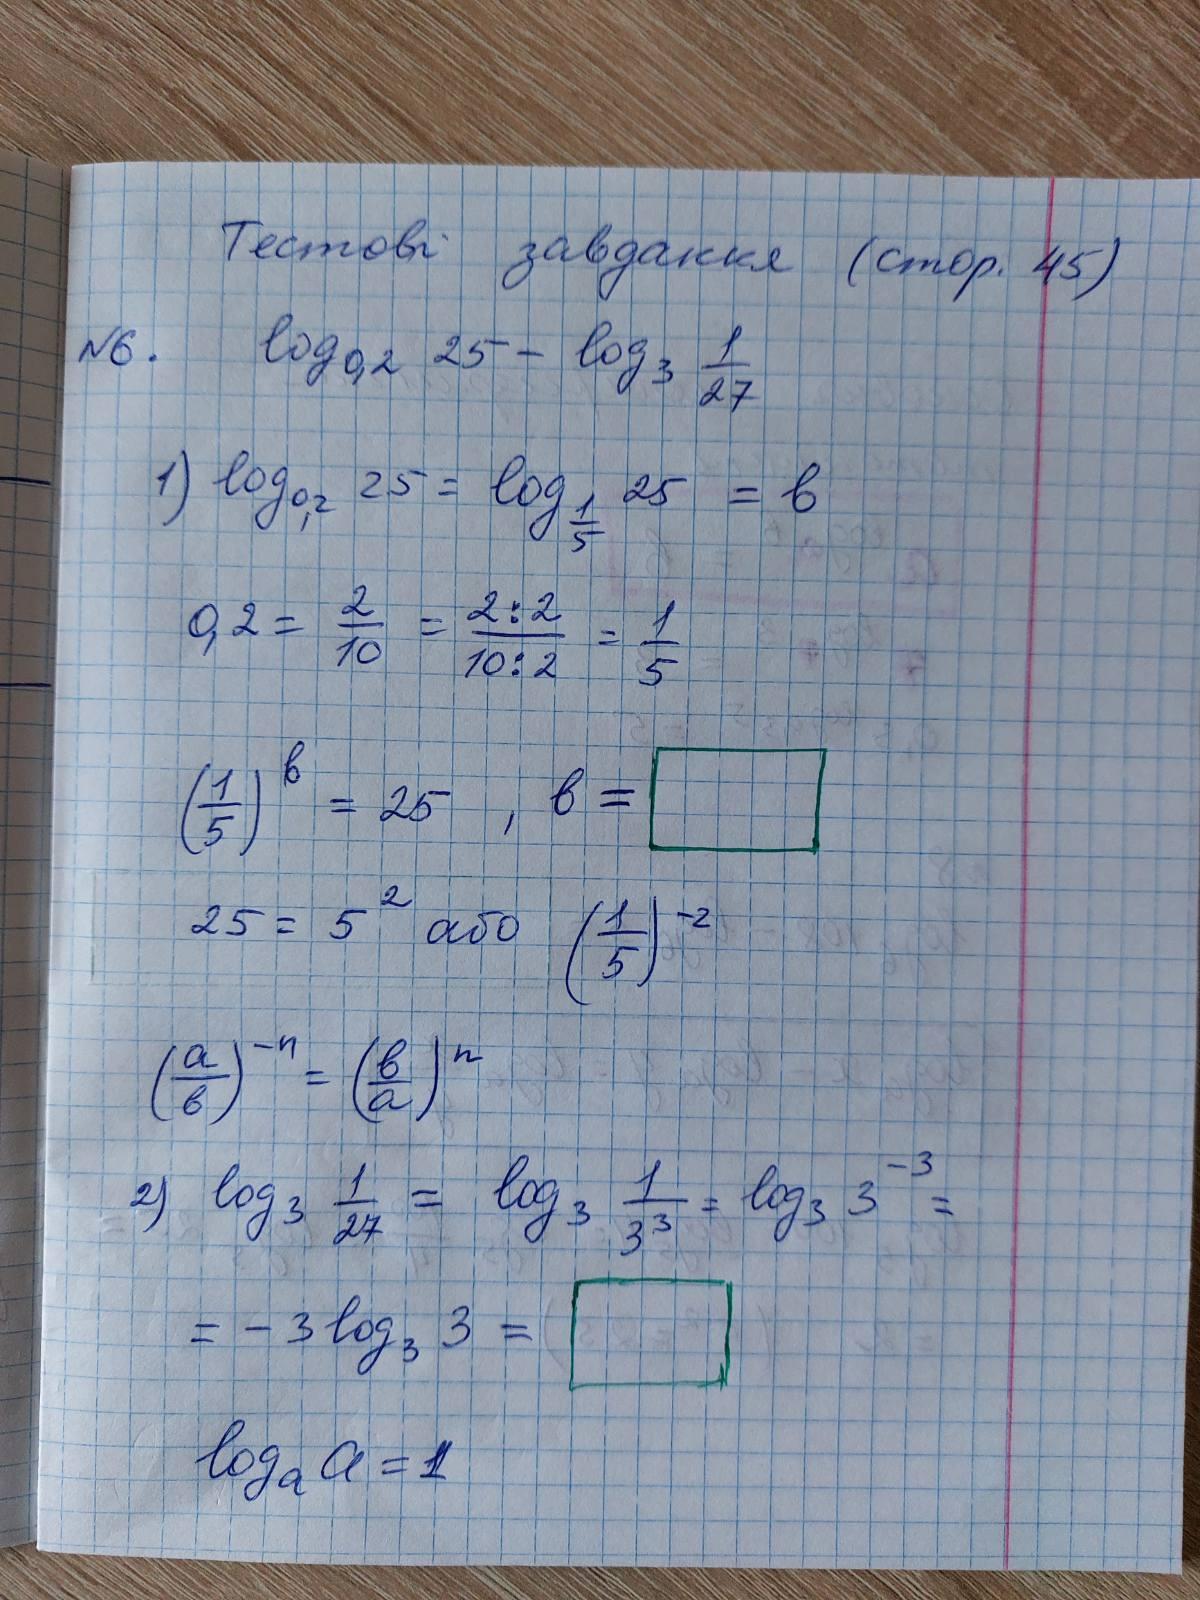 Тестові завдання (стор. 45)
№6. log₀,₂ 25 - log₃ 1/27
1) log₀,₂ 25 = log_{1/5} 25 = в
0,2 = 2/10 = 2:2/10:2 = 1/5
(1/5)^в = 25 , в =
25 = 5² або (1/5)⁻²
(a/в)⁻ⁿ = (в/a)ⁿ
2) log₃ 1/27 = log₃ 1/3³ = log₃ 3⁻³ =
= - 3 log₃ 3 =
logₐ a = 1